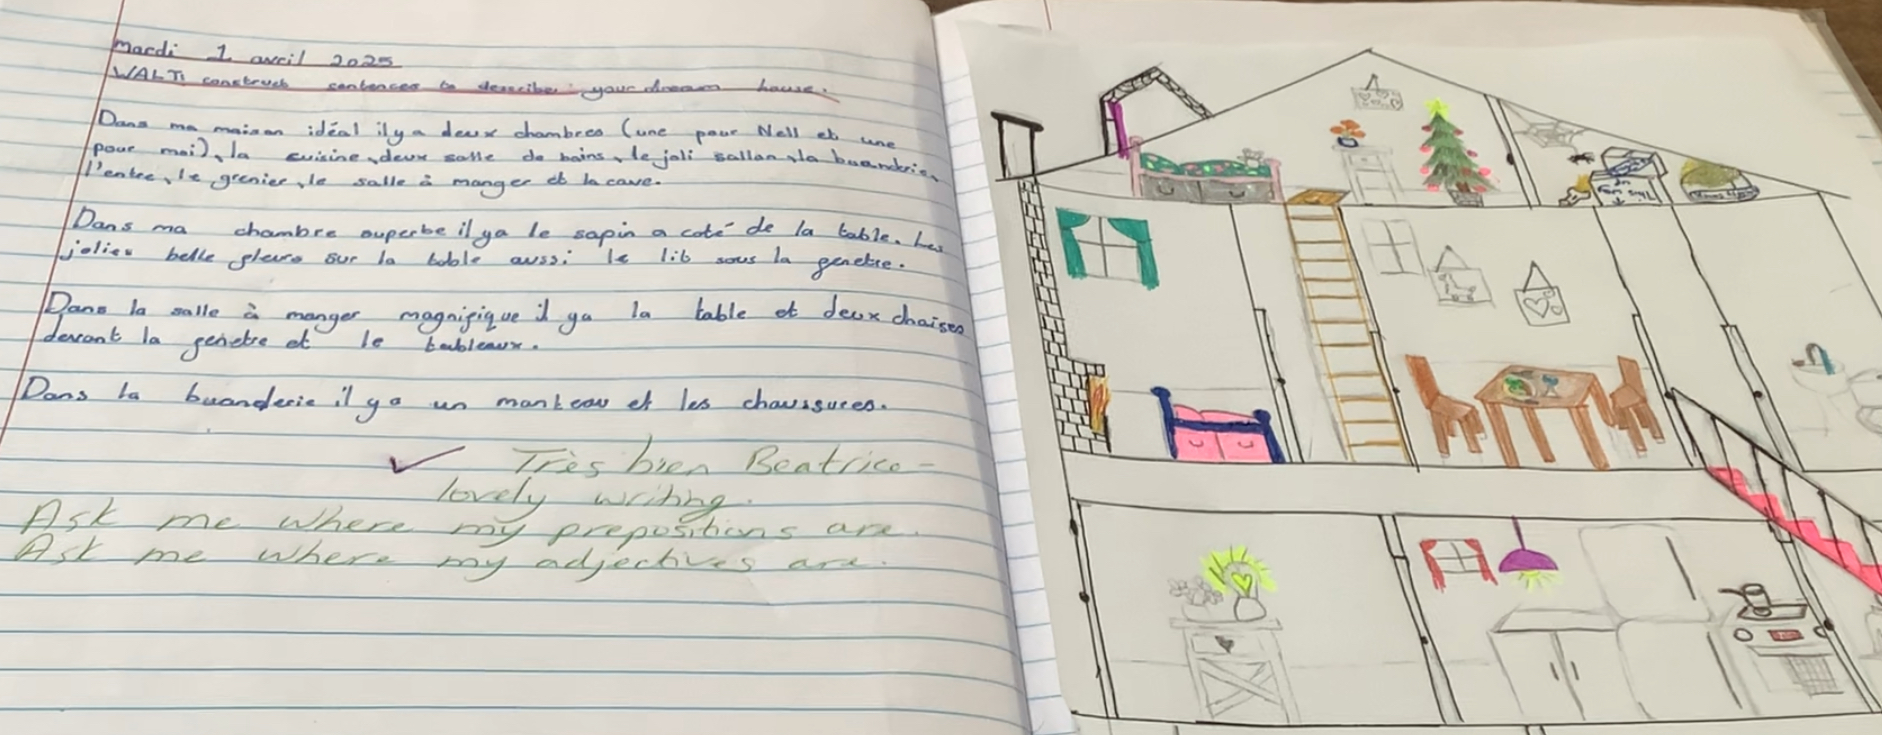 Mardi 1 avril 2025
WALT: construct sentences to describe your dream house.
Dans ma maison idéal il y a deux chambres (une pour Nell et une
pour moi), la cuisine, deux salle de bains, le joli sallon, la buanderie,
l'entre, le grenier, le salle à manger et la cave.
Dans ma chambre superbe il ya le sapin a coté de la table. Les
jolies belle fleurs sur la table aussi le lit sous la fenetre.
Dans la salle à manger magnifique il ya la table et deux chaises
devant la fenetre et le tableaux.
Dans la buanderie il y a un manteau et les chaussures.
Très bien Beatrice -
lovely writing.
Ask me where my prepositions are.
Ask me where my adjectives are.